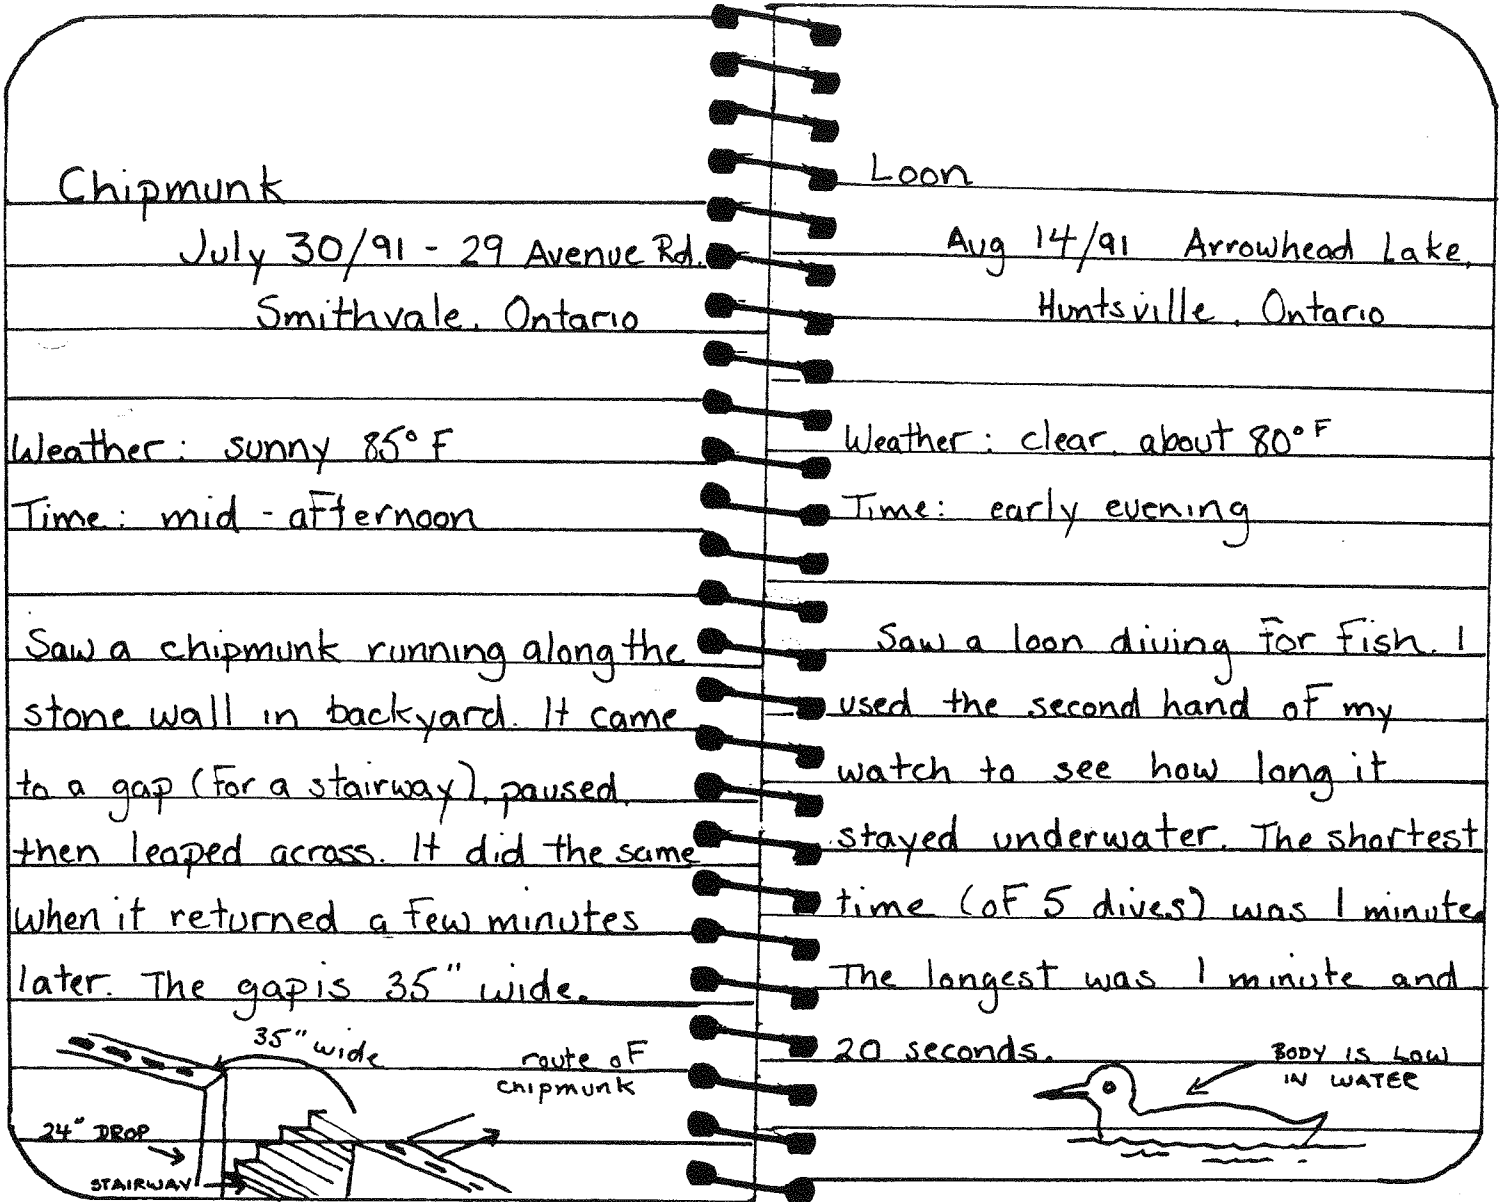 Chipmunk
July 30/91 - 29 Avenue Rd.
Smithvale, Ontario
Weather: sunny 85° F
Time: mid - afternoon
Saw a chipmunk running along the
stone wall in backyard. It came
to a gap (for a stairway), paused,
then leaped across. It did the same
when it returned a few minutes
later. The gap is 35" wide.
35" wide
route of
chipmunk
24" DROP
STAIRWAY
Loon
Aug 14/91 Arrowhead Lake,
Huntsville, Ontario
Weather: clear, about 80° F
Time: early evening
Saw a loon diving for fish. I
used the second hand of my
watch to see how long it
stayed underwater. The shortest
time (of 5 dives) was 1 minute.
The longest was 1 minute and
20 seconds.
BODY IS LOW
IN WATER